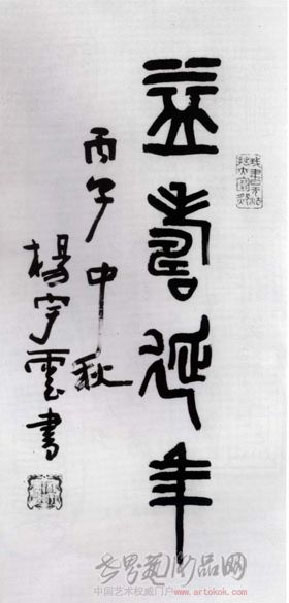 益壽延年
丙午中秋
楊宇雲書
世界艺术品网
中国艺术权威门户www.artokok.com